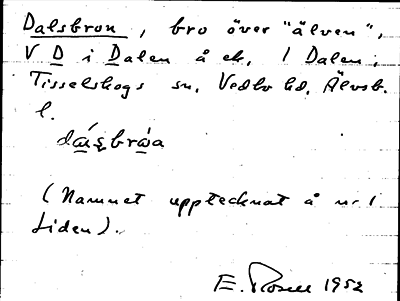 Dalsbron, bro över "älven",
V D i Dalen å ek. 1 Dalen,
Tisselskogs sn, Vedbo hd, Älvsb.
l.
(Namnet upptecknat å nr 1
Liden).
E. Rosell 1952